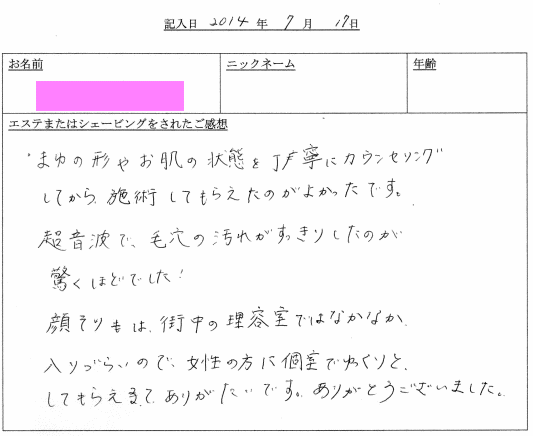 記入日 2014 年 7 月 17日
お名前 ニックネーム 年齢
エステまたはシェービングをされたご感想
・まゆの形やお肌の状態を丁寧にカウンセリング
してから、施術してもらえたのがよかったです。
超音波で、毛穴の汚れがすっきりしたのが
驚くほどでした!
顔そりもは、街中の理容室ではなかなか、
入りづらいので、女性の方に個室でゆっくりと、
してもらえるて、ありがたいです。ありがとうございました。